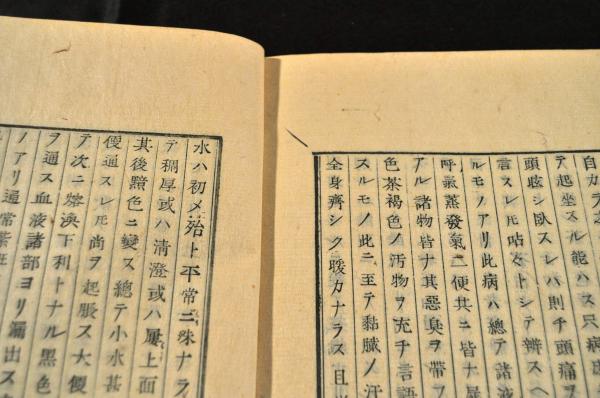 自カラ
テ起坐スル能ハス只病
頭眩シ臥スレバ則チ頭痛
言スレ𪜈呫々トシテ辨スヘ
ルモノアリ此病ハ總テ諸液
呼氣蒸發氣二便共ニ皆大
アル諸物皆ナ其惡臭ヲ帶フ
色茶褐色ノ汚物ヲ充チ言語
スルモノ此ニ至テ黏臓ノ汗
全身齊シク暖カナラス且
水ハ初メ殆ト平常ニ殊ナラ
テ稠厚或ハ清澄或ハ屢上面
其後黯色ニ變ス總テ小水甚
便通スレ𪜈尚ヲ起脹ス大便
テ次ニ溏泆下利トナル黑色
ヲ通ス血液諸部ヨリ漏出ス
ノアリ通常紫斑